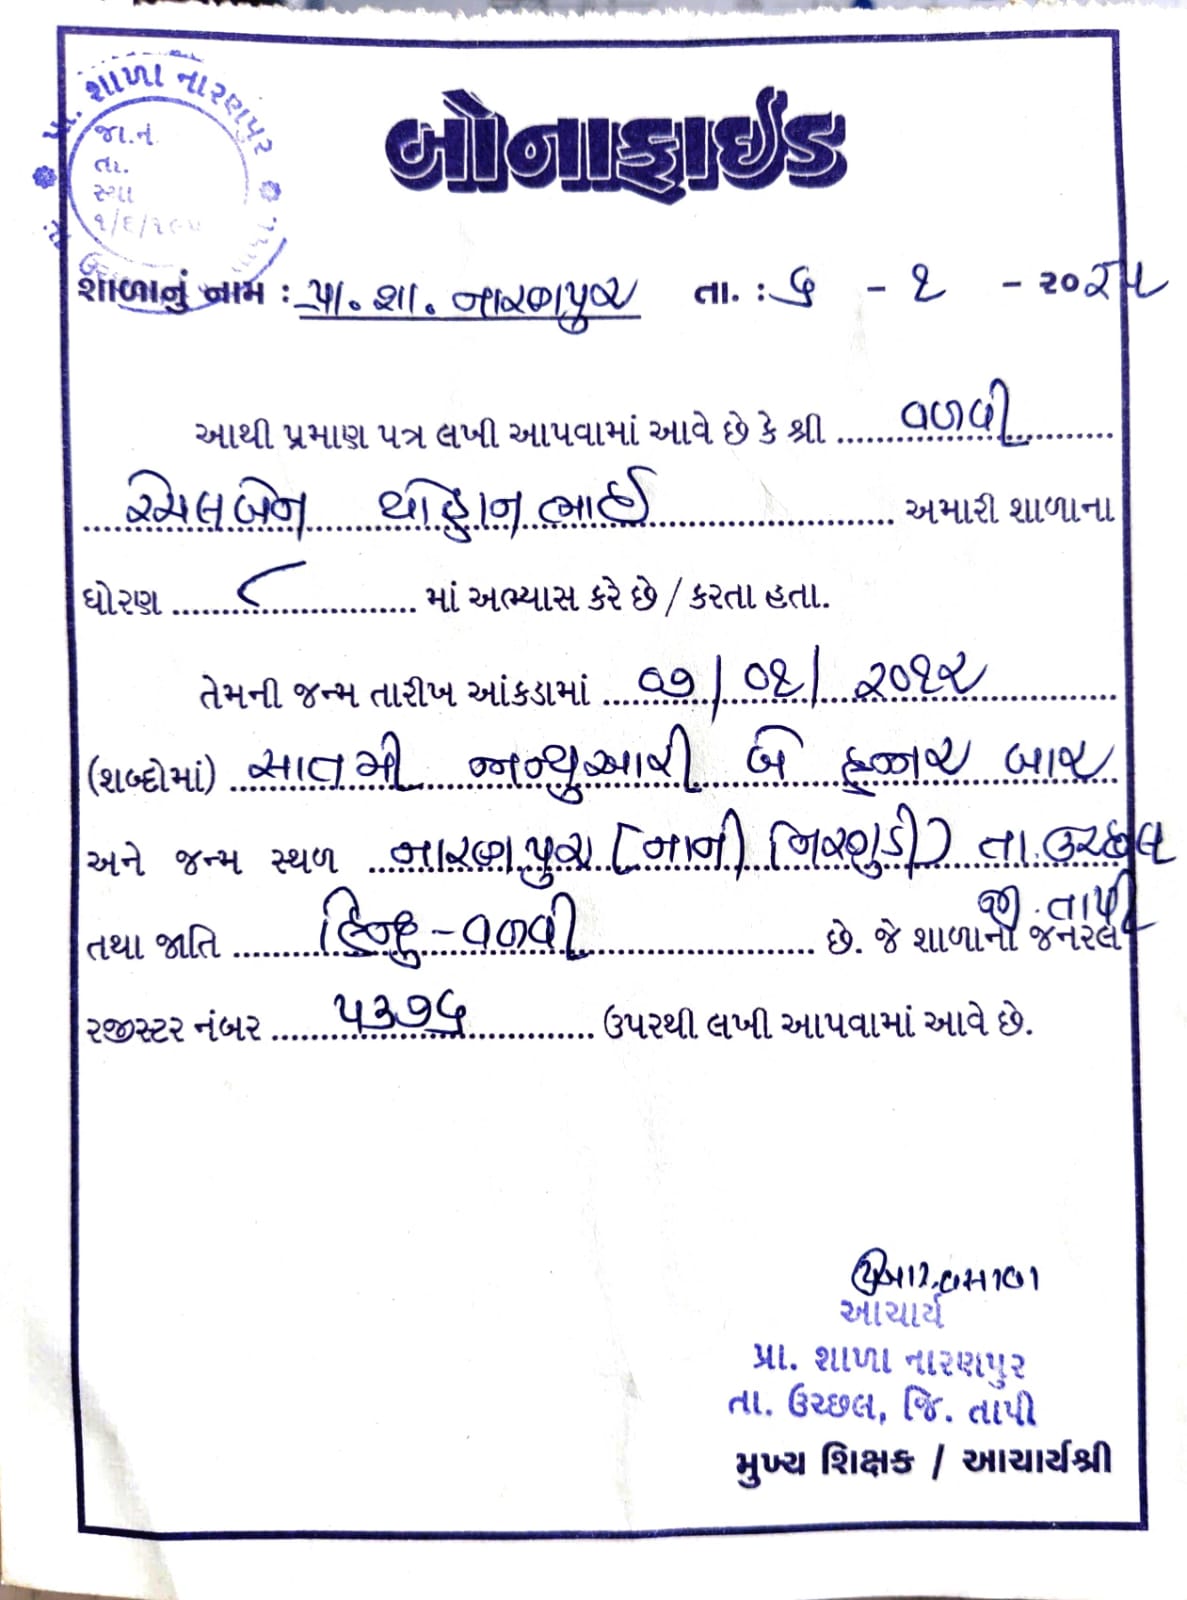 પ્રા. શાળા નારણપુર
જા.નં.
તા.
સ્થા
૧/૬/૧૯
બોનાફાઈડ
શાળાનું નામ : પ્રા. શા. નારણપુર તા. : ૬ - ૧ - ૨૦૨૫
આથી પ્રમાણ પત્ર લખી આપવામાં આવે છે કે શ્રી વળવી
રસેલબેન યોહાનભાઈ અમારી શાળાના
ધોરણ ૮ માં અભ્યાસ કરે છે / કરતા હતા.
તેમની જન્મ તારીખ આંકડામાં ૦૭/૦૧/૨૦૧૨
(શબ્દોમાં) સાતમી જાન્યુઆરી બે હજાર બાર
અને જન્મ સ્થળ નારણપુર (નાની ) તા. ઉચ્છલ
જી. તાપી
તથા જાતિ હિન્દુ - વળવી છે. જે શાળાના જનરલ
રજીસ્ટર નંબર ૫૩૭૬ ઉપરથી લખી આપવામાં આવે છે.
આચાર્ય
પ્રા. શાળા નારણપુર
તા. ઉચ્છલ, જિ. તાપી
મુખ્ય શિક્ષક / આચાર્યશ્રી